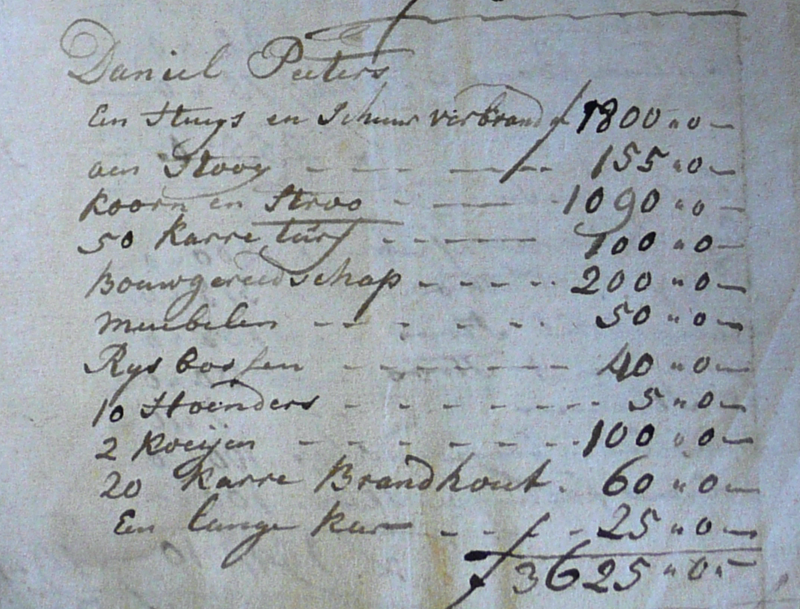 Daniel Peeters
Een Huys en Schuur verbrand ƒ 1800 " 0 —
aen Hooy - - - - - 155 " 0 —
Koorn en Stroo - - - 1090 " 0 —
50 Karre turf - - - - 100 " 0 —
Bouwgereedschap - - - - - 200 " 0 —
meubelen - - - - - 50 " 0 —
Rys bossen - - - - - 40 " 0 —
10 Hoenders - - - - - - 5 " 0 —
2 Koeijen - - - - - - 100 " 0 —
20 Karre Brandhout . 60 " 0 —
Een lange Kar - - - - 25 " 0 —
ƒ 3625 " 0 " —